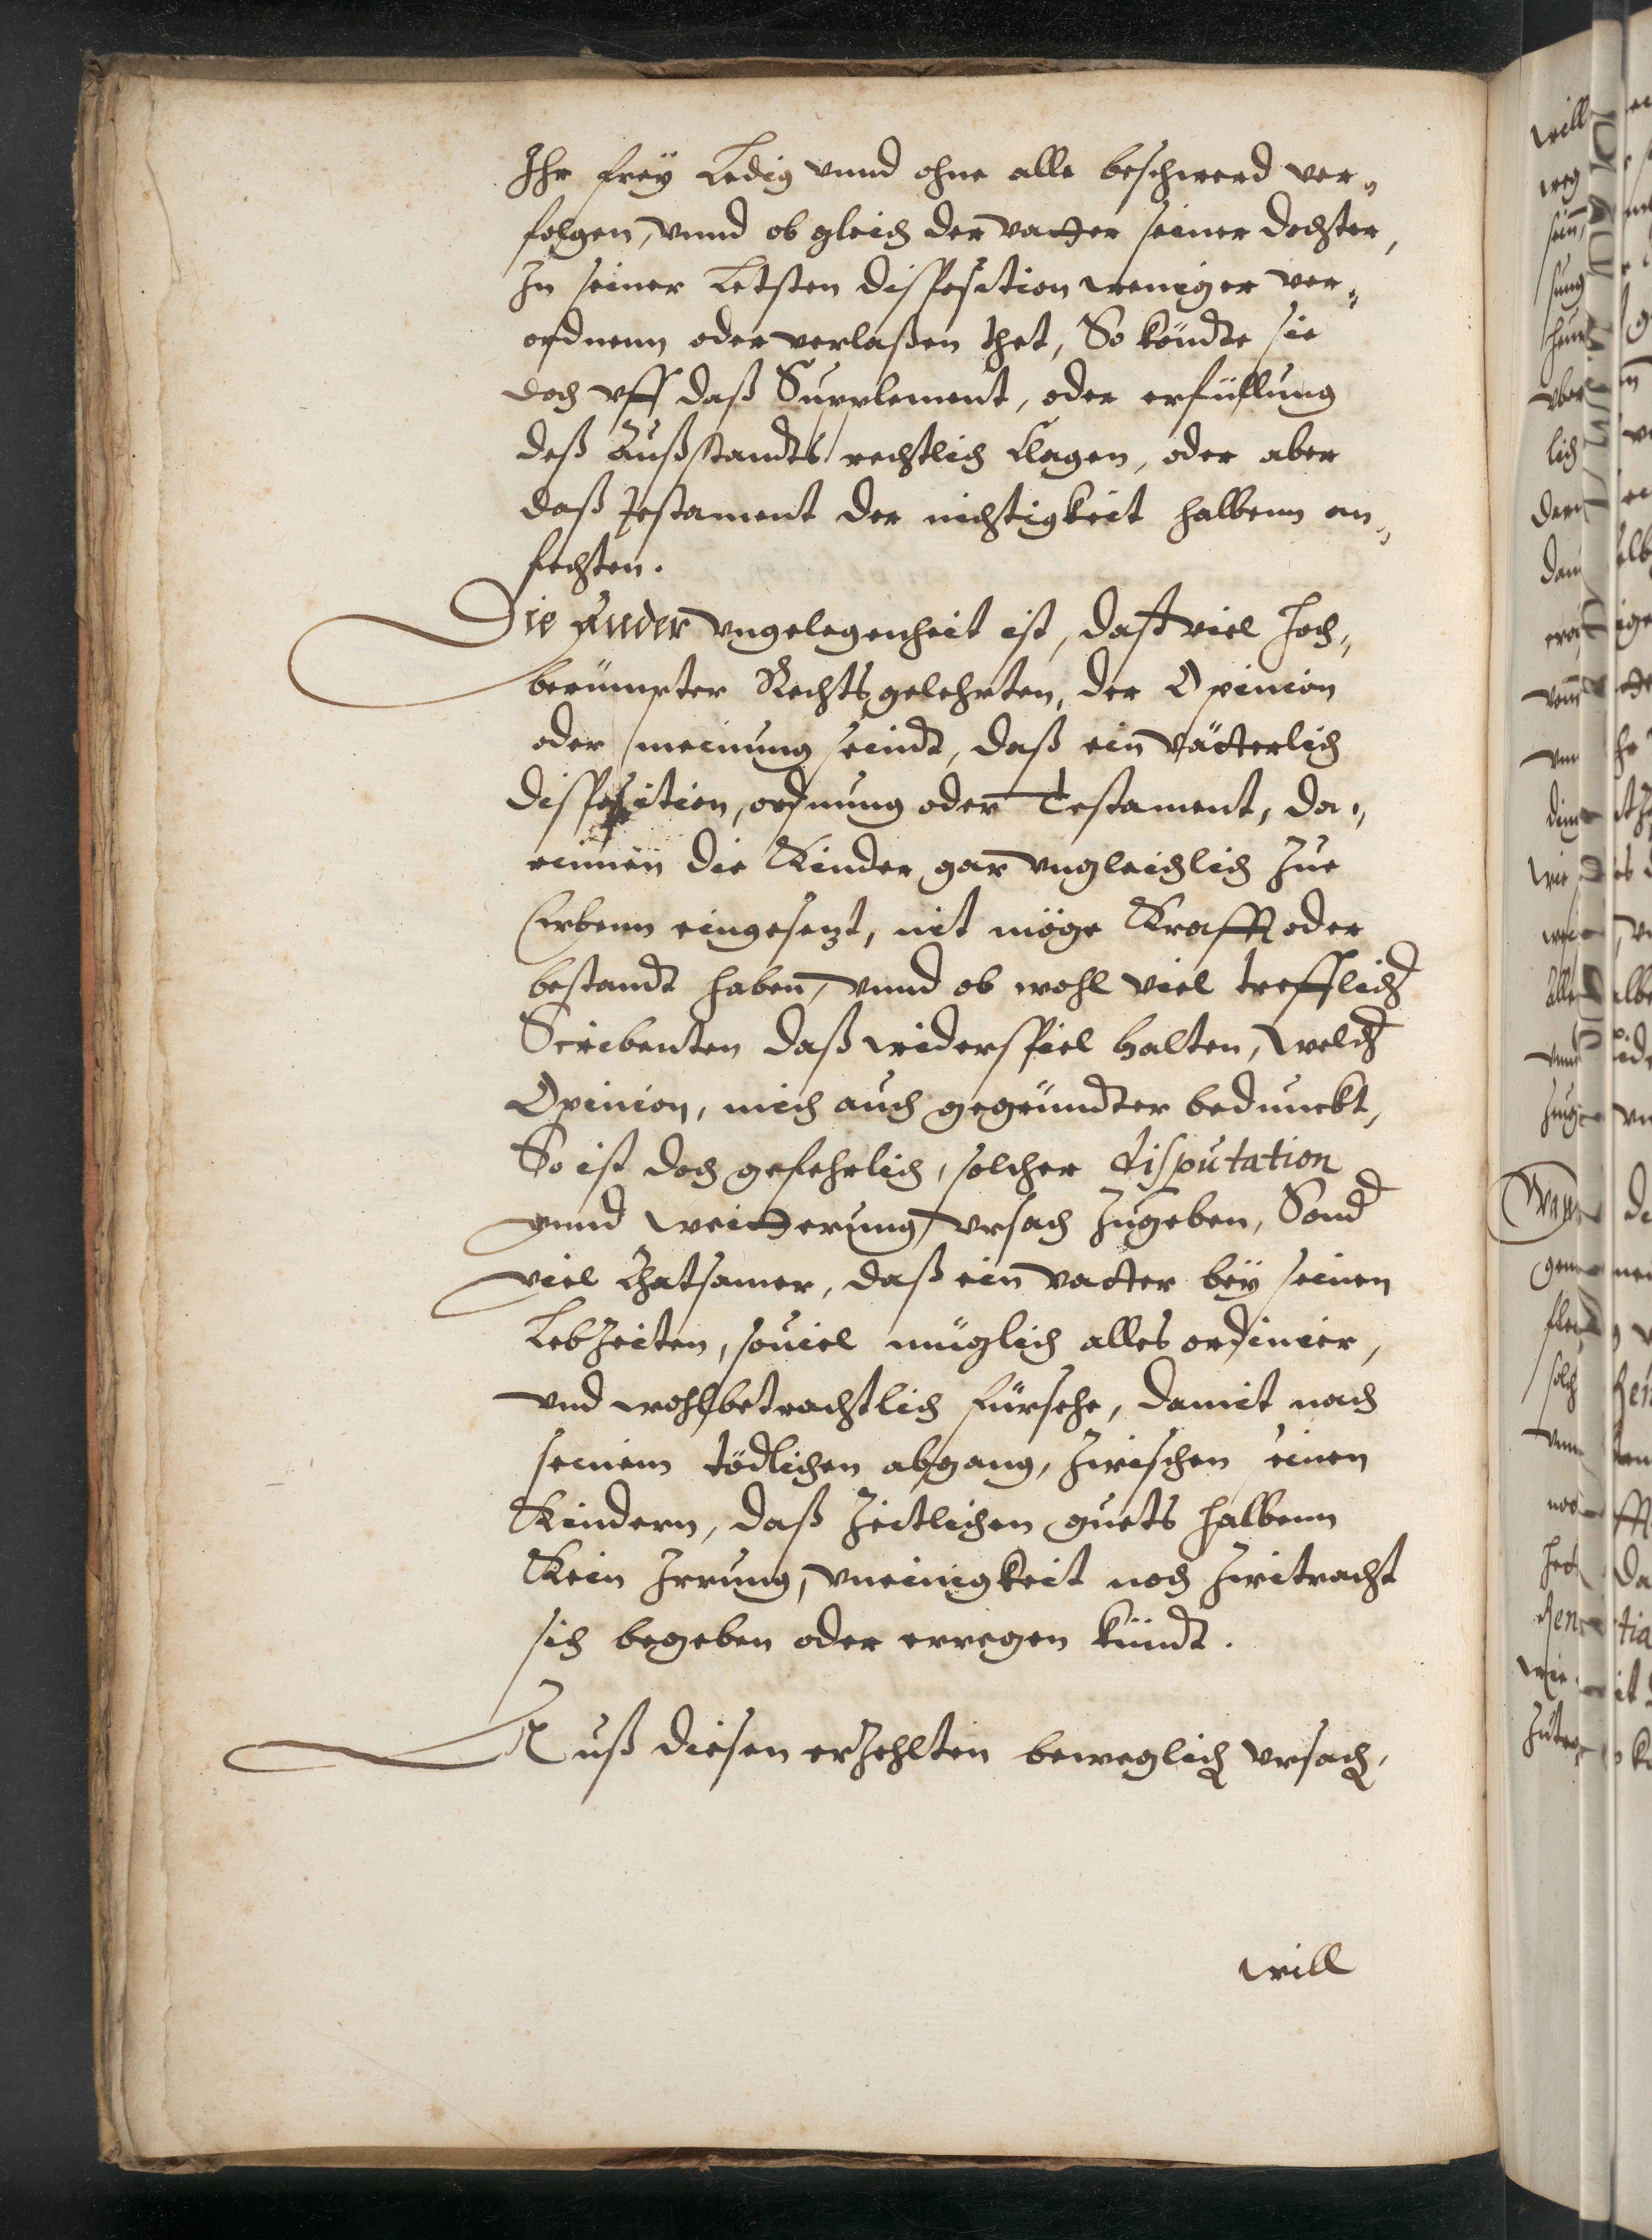 Ihr frey Ledig vnnd ohne alle beschwerd ver„
folgen, vnnd ob gleich der vatter seiner dochter,
In seiner Letsten disposition weniger ver„
ordnenn oder verlaßen thet, So köndte sie
doch vff daß Supplement, oder erfüllung
deß Außstandts rechtlich Clagen, oder aber
daß Testament der nichtigkeit halbenn an„
fechten.
Die Ander vngelegenheit ist, daß viel Hoch„
berümpter Rechtsgelehrten, der Opinion
oder meinung seindt, daß ein vätterlich
disposition, ordnung oder Testament, da„
rinnen die Kinder gar vngleichlich zue
Erbenn eingesetzt, nit möge Krafft oder
bestandt haben, vnnd ob wohl viel trefflich
Scribenten daß widerspiel halten, welch
Opinion, mich auch gegründter bedunckt,
So ist doch gefehrlich, solcher disputation
vnnd weitterung vrsach zugeben, Sond
viel Rhatsamer, daß ein vatter bey seinen
Lebzeiten, souiel müglich alles ordinier,
vnd wohlbetrachtlich fürsehe, damit nach
seinem tödlichen abgang, zwischen seinen
Kindern, daß zeitlichen guets halbenn
Kein Irrung, vneinigkeit noch zwitracht
sich begeben oder erregen kündt.
Auß diesen erzehlten beweglich vrsach,
will